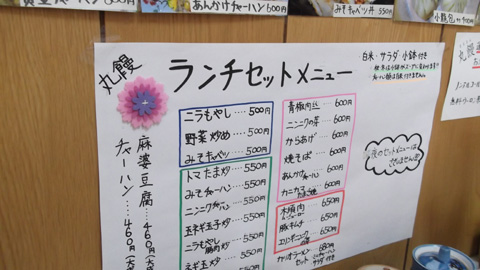 あんかけチャーハン 600円
みそキャベツ丼 550円
丸饅
ランチセットメニュー
白米・サラダ・小鉢付き
ニラもやし…500円
野菜炒め…500円
みそキャベツ…500円
トマたま炒め…550円
みそチャーハン…550円
ニンニクチャーハン…550円
玉ネギ玉子炒…550円
ニラもやし…550円
ネギ玉炒…550円
青椒肉絲…600円
ニンニクの芽…600円
からあげ…600円
焼そば…600円
あんかけチャーハン…600円
カニカマたまご焼…600円
木須肉…650円
豚キムチ…650円
エリンギニンニク…650円
麻婆豆腐…460円
チャーハン…460円
夜のセットメニューは